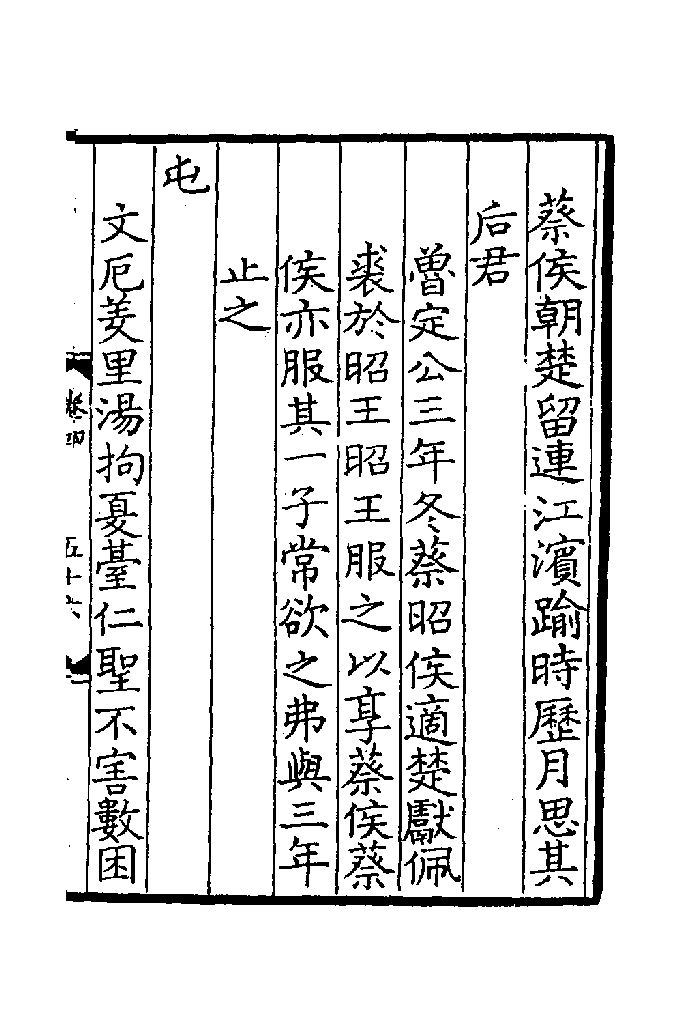 蔡侯朝楚留連江濱踰時歷月思其
后君
魯定公三年冬蔡昭侯適楚獻佩
裘於昭王昭王服之以享蔡侯蔡
侯亦服其一子常欲之弗與三年
止之
屯
文厄羑里湯拘夏臺仁聖不害數困
卷四
五十六